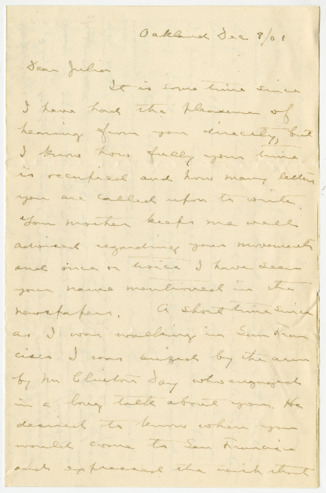 Oakland Dec 8/01
Dear Julia
It is some time since
I have had the pleasure of
hearing from you directly, but
I know how fully your time
is occupied and how many letters
you are called upon to write.
Your mother keeps me well
advised regarding your movements
and once or twice I have seen
your name mentioned in the
newspapers. A short time since
as I was walking in San Fran
cisco I was seized by the arm
by Mr Clinton Day who engaged
in a long talk about you. He
desired to know when you
would come to San Francisco
and expressed the wish that